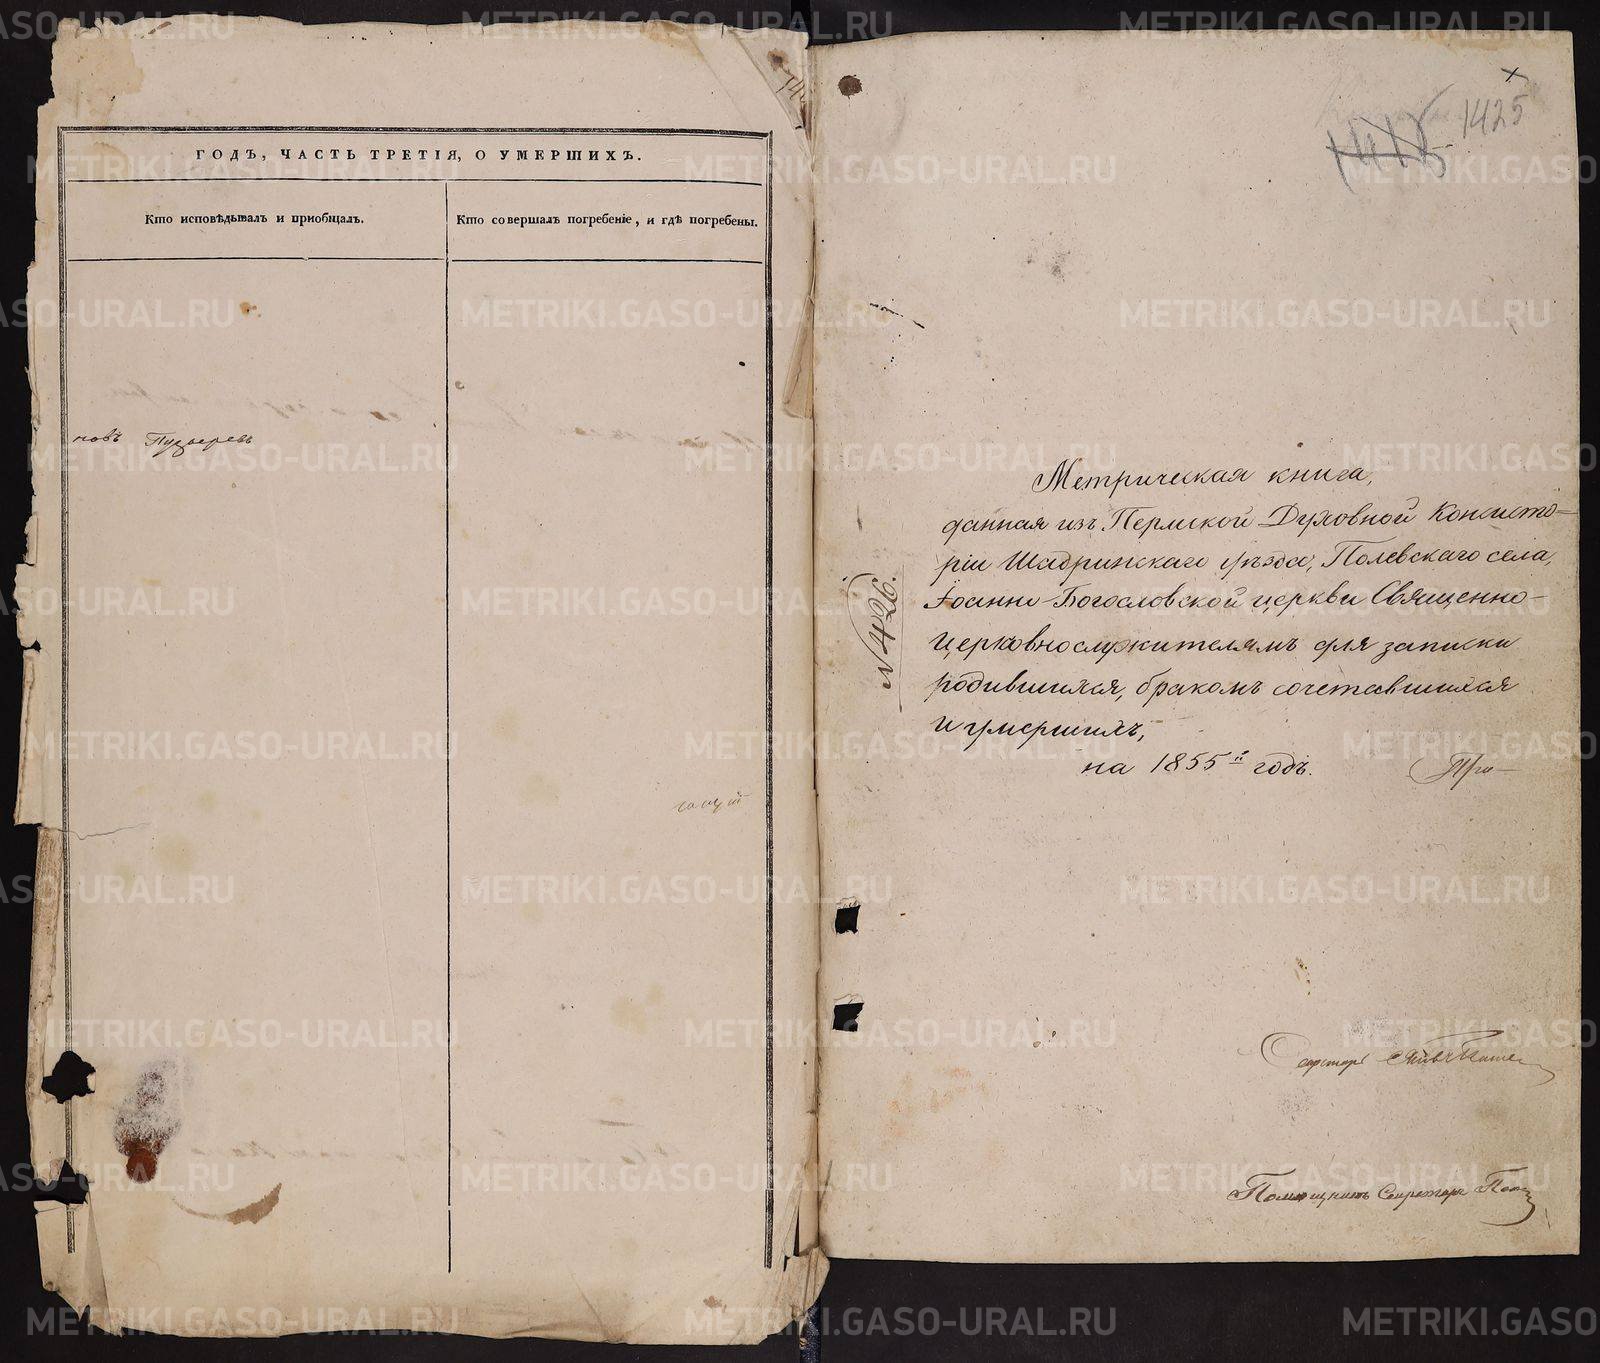 ГОДЪ, ЧАСТЬ ТРЕТІЯ, О УМЕРШИХЪ.
Кто исповѣдывалъ и приобщалъ.
Кто совершалъ погребеніе, и гдѣ погребены.
новъ Пузыревъ
1425
№ 426.
Метрическая книга,
данная изъ Пермской Духовной Консисто-
ріи Шадринскаго уѣзда, Полевскаго села,
Іоанно-Богословской церкви Священно-
церковнослужителямъ для записки
родившихся, бракомъ сочетавшихся
и умершихъ,
на 1855й годъ.
При-
Секретарь
Помощникъ Секретаря
METRIKI.GASO-URAL.RU